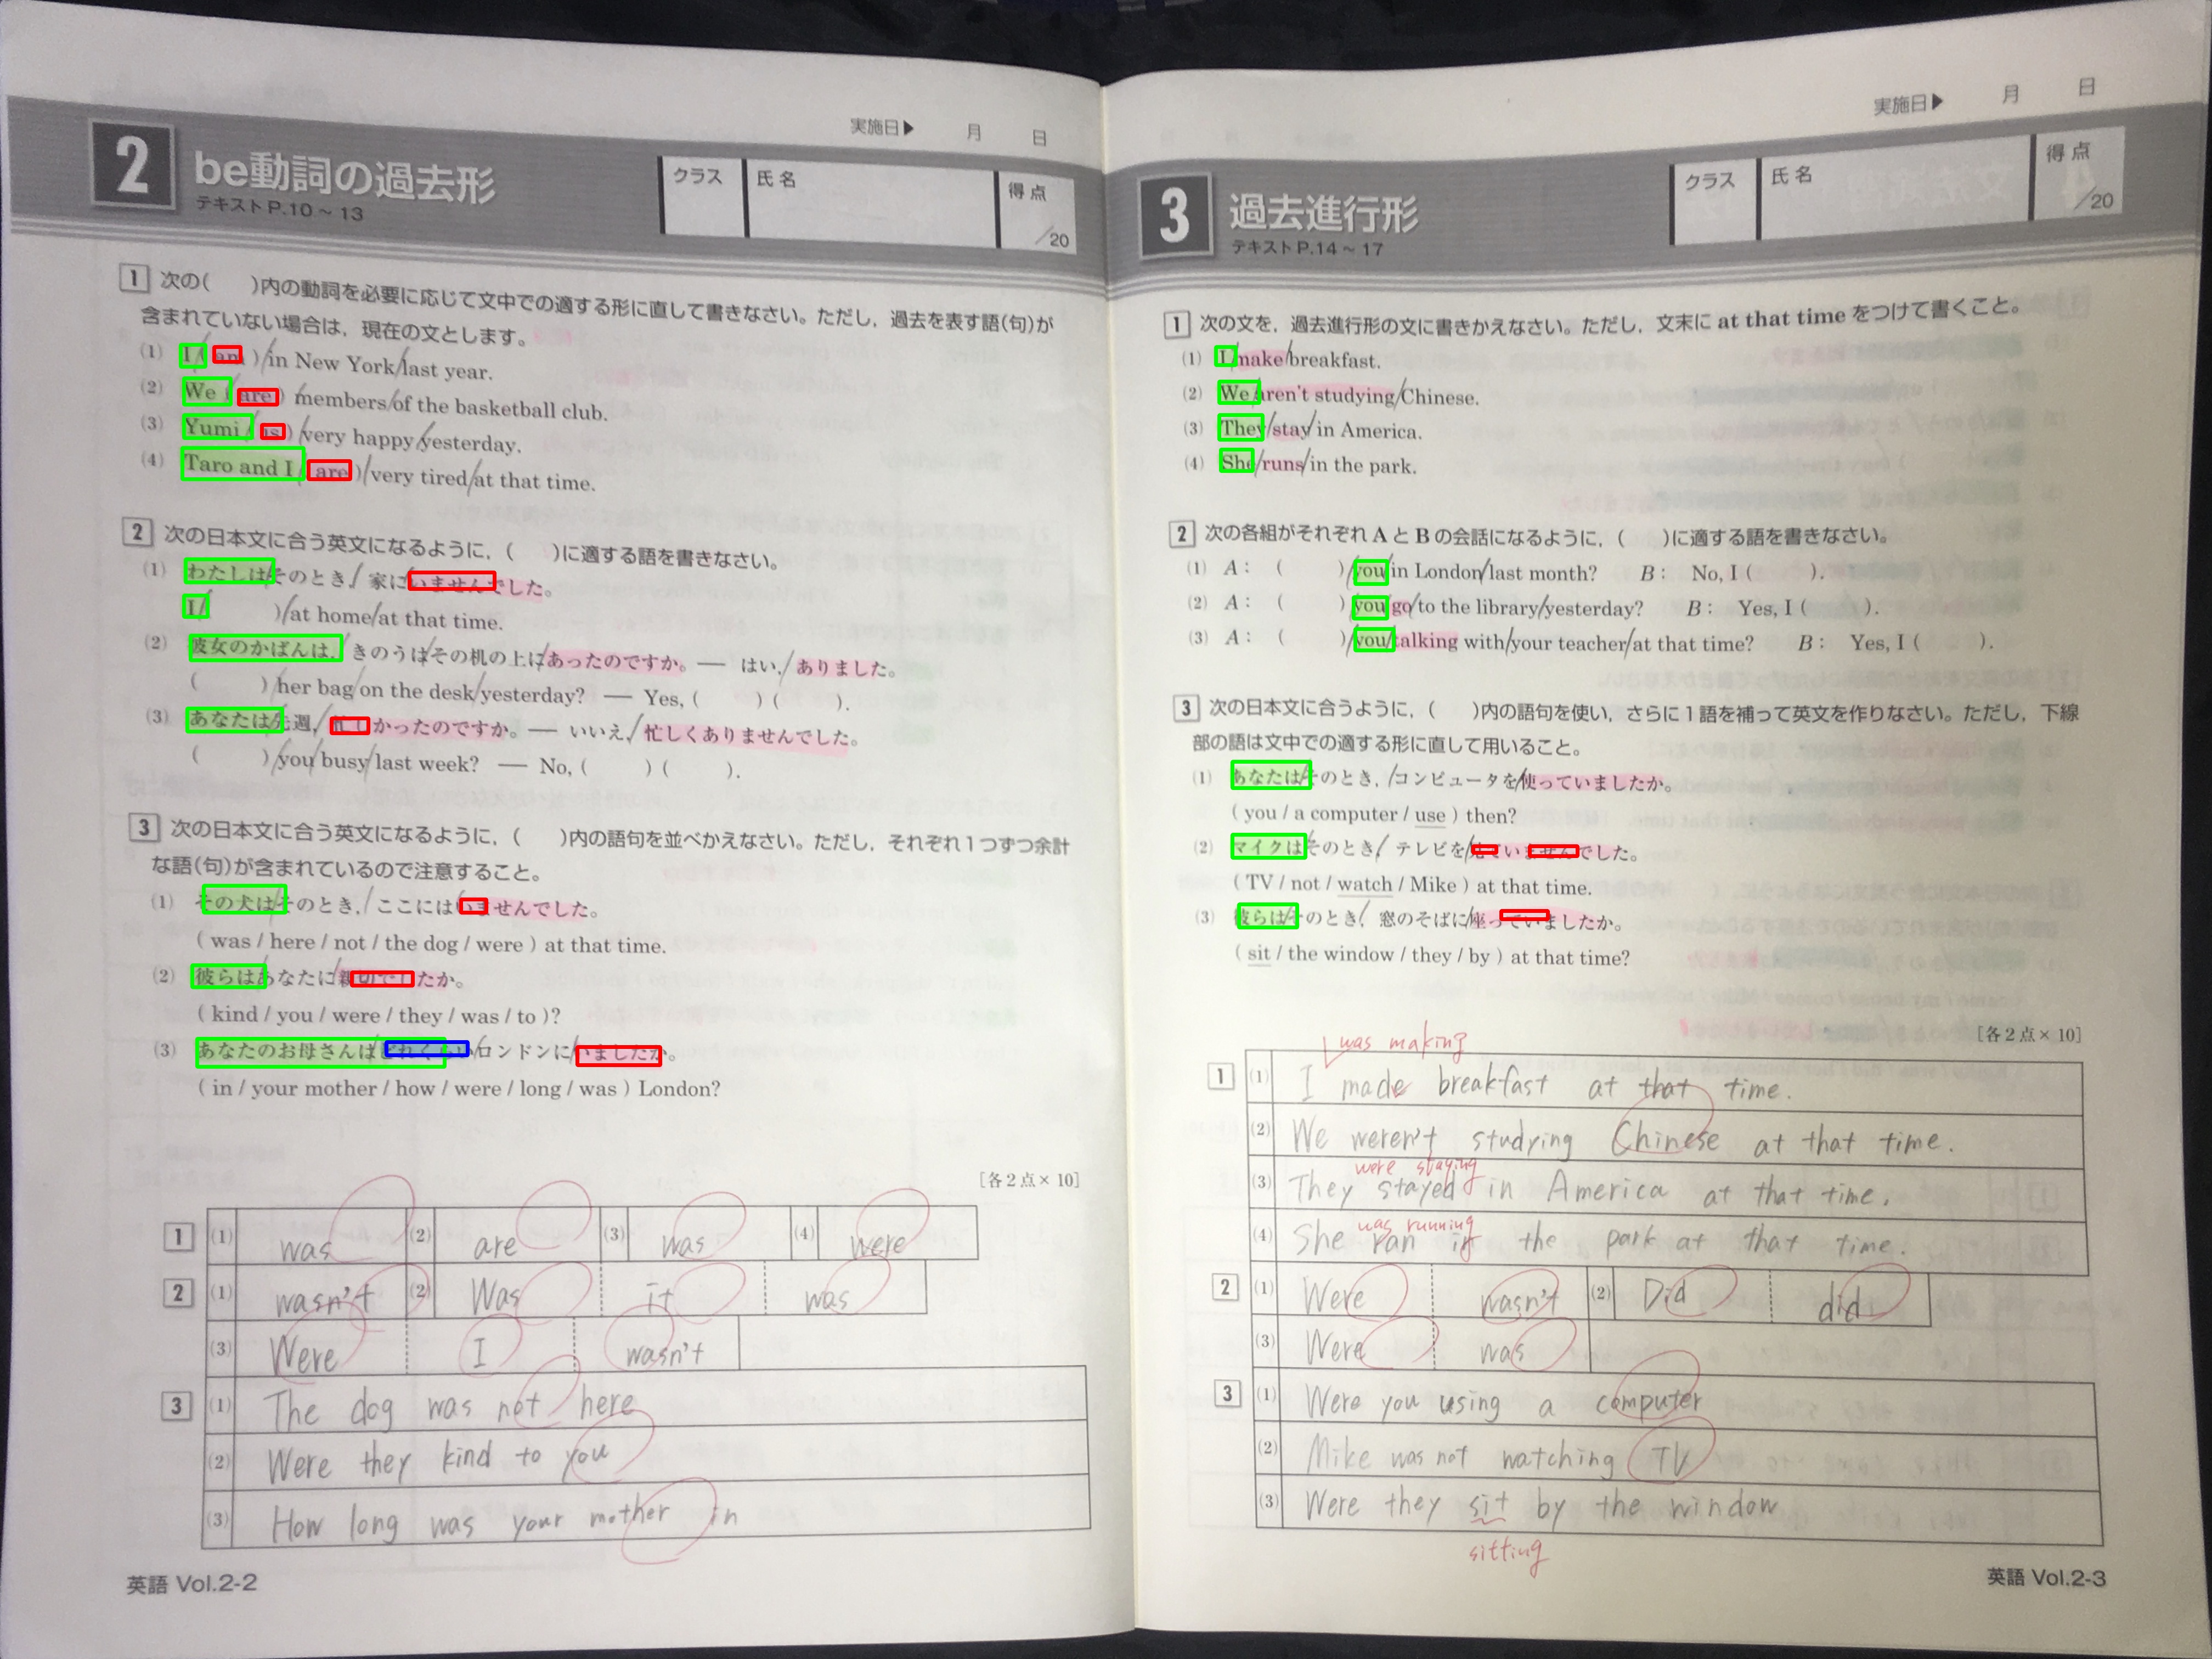 実施日▶ 月 日
2 be動詞の過去形
テキストP.10～13
クラス 氏名 得点 /20
1 次の( )内の動詞を必要に応じて文中での適する形に直して書きなさい。ただし，過去を表す語(句)が
含まれていない場合は，現在の文とします。
(1) I ( am ) in New York last year.
(2) We ( are ) members of the basketball club.
(3) Yumi ( is ) very happy yesterday.
(4) Taro and I ( are ) very tired at that time.
2 次の日本文に合う英文になるように，( )に適する語を書きなさい。
(1) わたしはそのとき，家にいませんでした。
I ( ) at home at that time.
(2) 彼女のかばんは，きのうはその机の上にあったのですか。― はい，ありました。
( ) her bag on the desk yesterday? ― Yes, ( ) ( ).
(3) あなたは先週，忙しかったのですか。― いいえ，忙しくありませんでした。
( ) you busy last week? ― No, ( ) ( ).
3 次の日本文に合う英文になるように，( )内の語句を並べかえなさい。ただし，それぞれ1つずつ余計
な語(句)が含まれているので注意すること。
(1) その犬はそのとき，ここにはいませんでした。
( was / here / not / the dog / were ) at that time.
(2) 彼らはあなたに親切でしたか。
( kind / you / were / they / was / to )?
(3) あなたのお母さんはどれくらいロンドンにいましたか。
( in / your mother / how / were / long / was ) London?
[各2点×10]
1 (1) was (2) are (3) was (4) were
2 (1) wasn't (2) Was it was
(3) Were I wasn't
3 (1) The dog was not here
(2) Were they kind to you
(3) How long was your mother in
英語 Vol.2-2
実施日▶ 月 日
3 過去進行形
テキストP.14～17
クラス 氏名 得点 /20
1 次の文を，過去進行形の文に書きかえなさい。ただし，文末に at that time をつけて書くこと。
(1) I make breakfast.
(2) We aren't studying Chinese.
(3) They stay in America.
(4) She runs in the park.
2 次の各組がそれぞれ A と B の会話になるように，( )に適する語を書きなさい。
(1) A： ( ) you in London last month? B： No, I ( ).
(2) A： ( ) you go to the library yesterday? B： Yes, I ( ).
(3) A： ( ) you talking with your teacher at that time? B： Yes, I ( ).
3 次の日本文に合うように，( )内の語句を使い，さらに1語を補って英文を作りなさい。ただし，下線
部の語は文中での適する形に直して用いること。
(1) あなたはそのとき，コンピュータを使っていましたか。
( you / a computer / use ) then?
(2) マイクはそのとき，テレビを見ていませんでした。
( TV / not / watch / Mike ) at that time.
(3) 彼らはそのとき，窓のそばに座っていましたか。
( sit / the window / they / by ) at that time?
[各2点×10]
was making
1 (1) I made breakfast at that time.
(2) We weren't studying Chinese at that time.
were staying
(3) They stayed in America at that time.
was running
(4) She ran in the park at that time.
2 (1) Were wasn't (2) Did did
(3) Were was
3 (1) Were you using a computer
(2) Mike was not watching TV
(3) Were they sit by the window
sitting
英語 Vol.2-3